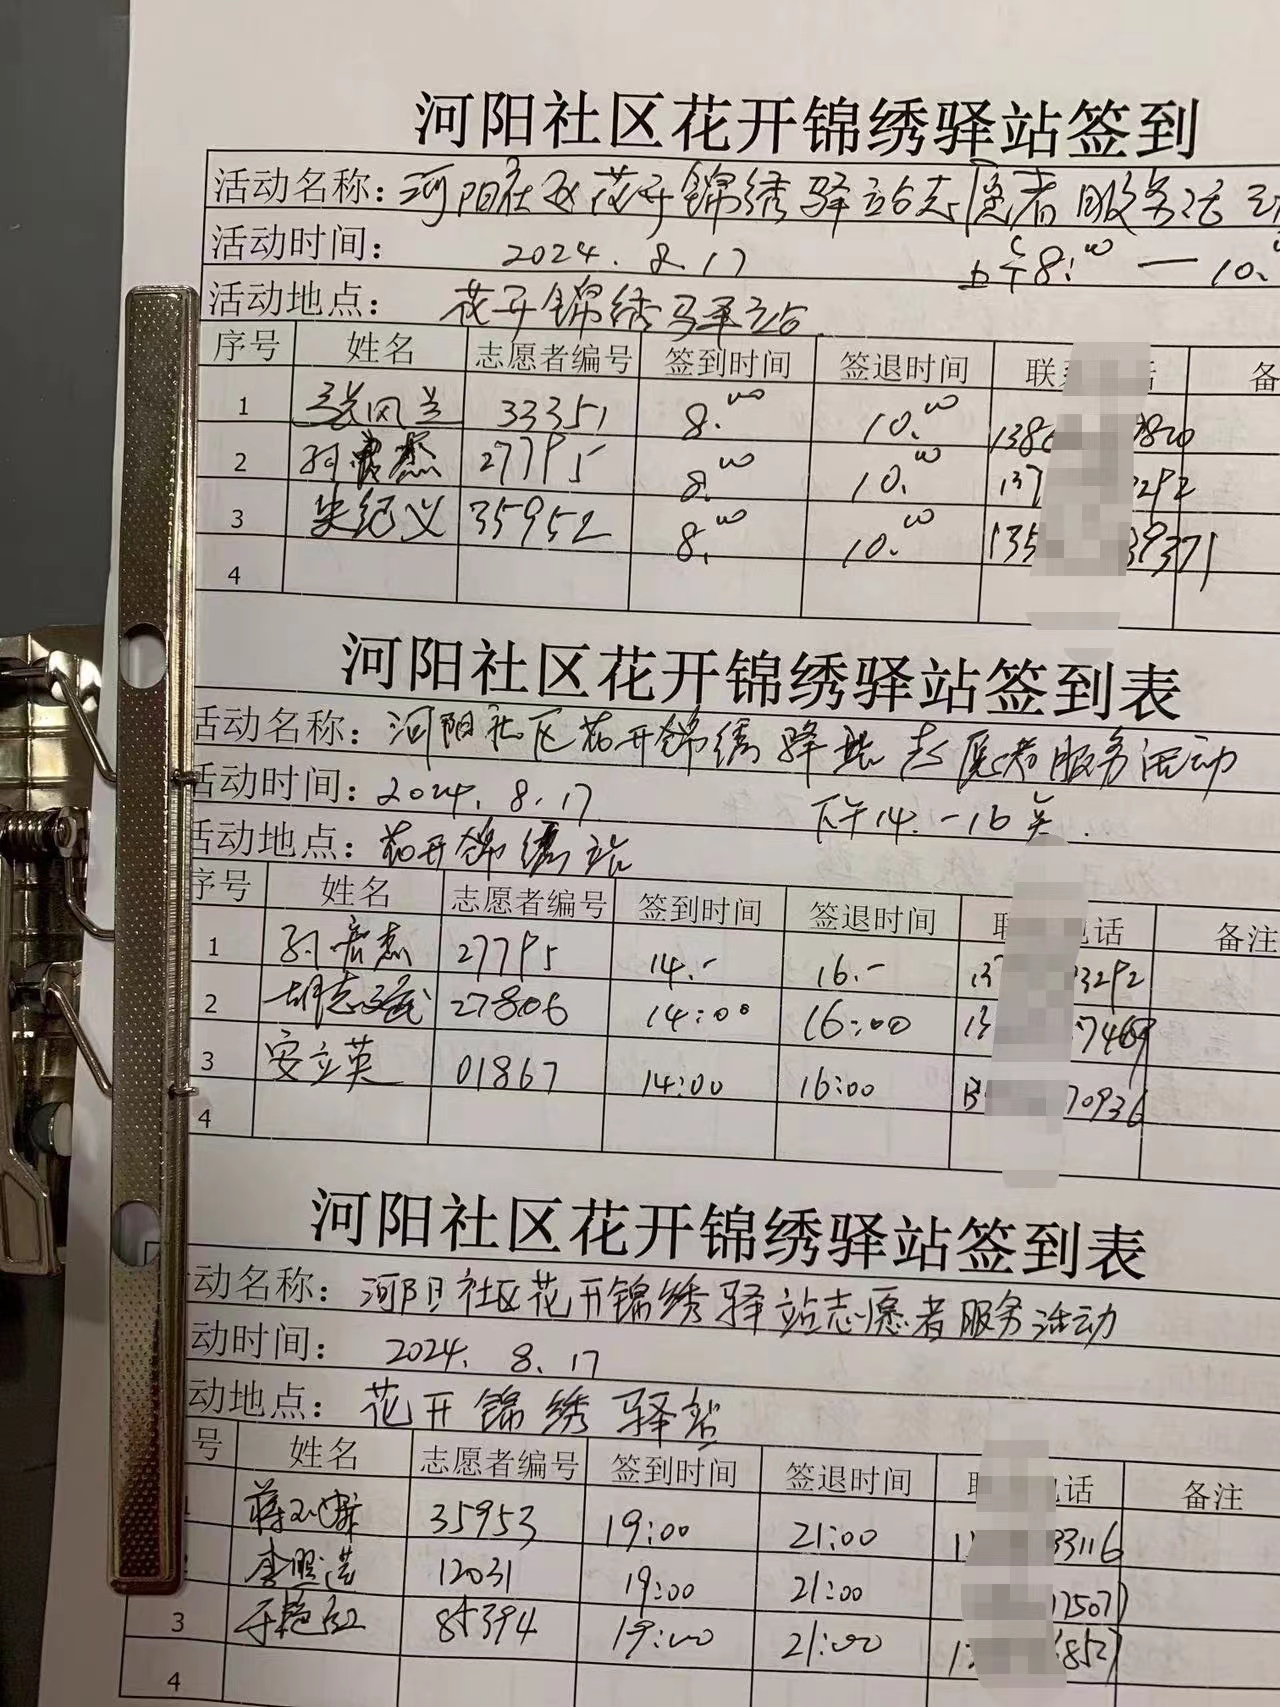 河阳社区花开锦绣驿站签到
活动名称：河阳社区花开锦绣驿站志愿者服务活动
活动时间： 2024.8.17 上午8:00 — 10.00
活动地点： 花开锦绣驿站
序号 姓名 志愿者编号 签到时间 签退时间 联 话 备
1 张风兰 33351 8.00 10.00 138
2 27795 8.00 10.00 137 3292
3 朱纪义 35952 8.00 10.00 135 39371
4
河阳社区花开锦绣驿站签到表
活动名称：河阳社区花开锦绣驿站志愿者服务活动
活动时间：2024.8.17 下午14.-16点
活动地点：花开锦绣站
序号 姓名 志愿者编号 签到时间 签退时间 联 电话 备注
1 孙宏杰 27795 14.- 16.- 137 3292
2 胡志斌 27806 14:00 16:00 13 7469
3 安立英 01867 14:00 16:00 13 70936
4
河阳社区花开锦绣驿站签到表
动名称：河阳社区花开锦绣驿站志愿者服务活动
动时间： 2024.8.17
动地点：花开锦绣驿站
号 姓名 志愿者编号 签到时间 签退时间 联 电话 备注
35953 19:00 21:00 33116
李照莲 12031 19:00 21:00 75077
3 于艳红 85394 19:00 21:00 8527
4